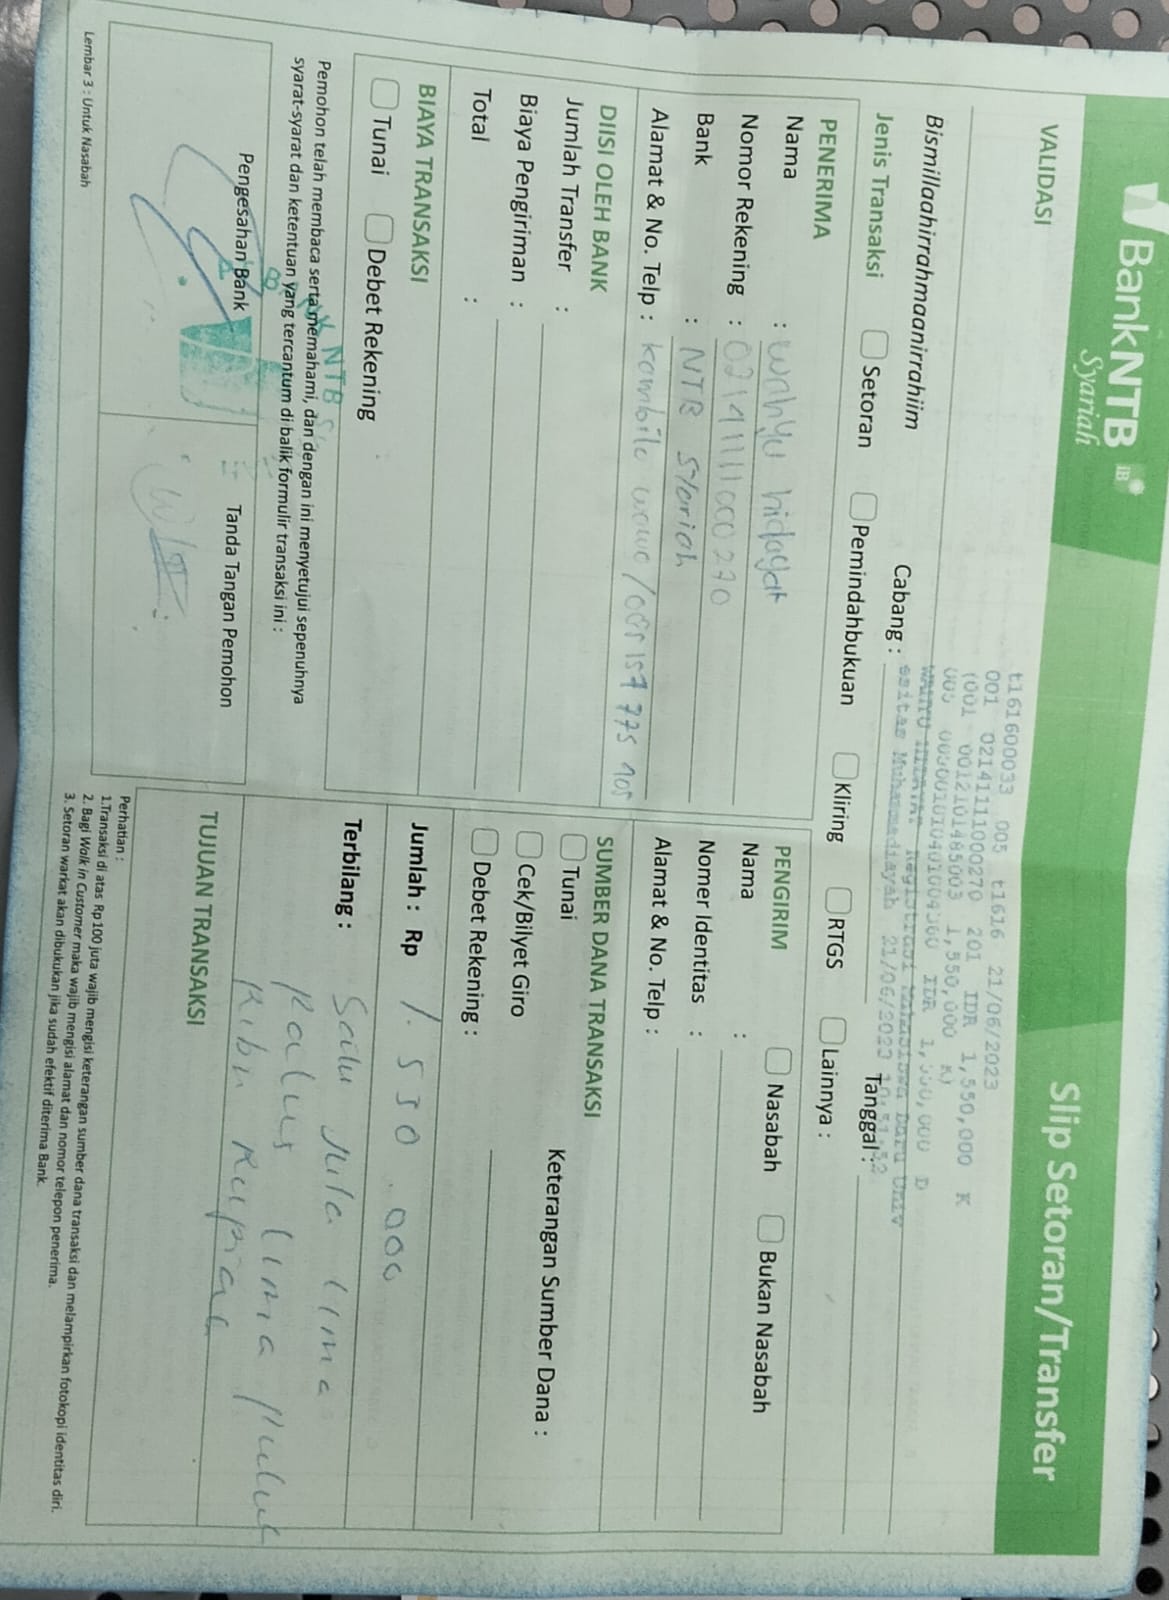 BankNTB
Syariah
iB
Slip Setoran/Transfer
VALIDASI
t161600033 005 t1616 21/06/2023
001 0214111000270 201 IDR 1,550,000 K
(001 0012101485003 1,550,000 K)
IDR D
Registrasi Mahasiswa Baru Univ
Muhammadiyah 21/06/2023 10:51:52
Bismillaahirrahmaanirrahiim
Cabang :
Tanggal :
Jenis Transaksi
Setoran
Pemindahbukuan
Kliring
RTGS
Lainnya :
PENERIMA
Nama : Wahyu hidayat
Nomor Rekening :
Bank : NTB Syariah
Alamat & No. Telp : kombilo wawo /
PENGIRIM
Nasabah
Bukan Nasabah
Nama :
Nomer Identitas :
Alamat & No. Telp :
DIISI OLEH BANK
Jumlah Transfer :
Biaya Pengiriman :
Total :
SUMBER DANA TRANSAKSI
Tunai
Keterangan Sumber Dana :
Cek/Bilyet Giro
Debet Rekening :
BIAYA TRANSAKSI
Tunai
Debet Rekening
Jumlah : Rp 1.550.000
Terbilang : Satu Juta lima
Ratus lima Puluh
Ribu Rupiah
Pemohon telah membaca serta memahami, dan dengan ini menyetujui sepenuhnya
syarat-syarat dan ketentuan yang tercantum di balik formulir transaksi ini :
Pengesahan Bank
Tanda Tangan Pemohon
TUJUAN TRANSAKSI
Perhatian :
1.Transaksi di atas Rp 100 juta wajib mengisi keterangan sumber dana transaksi dan melampirkan fotokopi identitas diri.
2. Bagi Walk in Customer maka wajib mengisi alamat dan nomor telepon penerima.
3. Setoran warkat akan dibukukan jika sudah efektif diterima Bank.
Lembar 3 : Untuk Nasabah